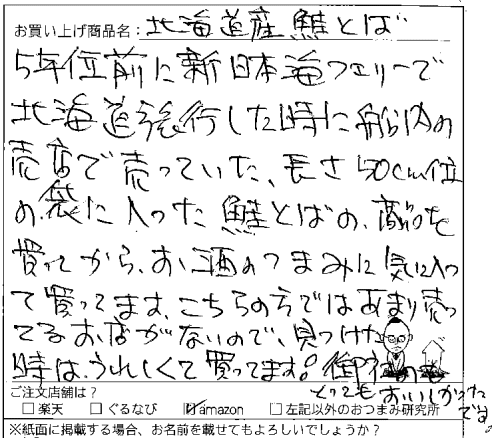 お買い上げ商品名：北海道産鮭とば
5年位前に新日本海フェリーで
北海道旅行した時に船内の
売店で売っていた、長さ50cm位
の袋に入った鮭とばの、商品を
買ってから、お酒のつまみに気に入っ
て買ってます、こちらの方ではあまり売っ
てるお店がないので、見つけた
時は、うれしくて買ってます。御社のも
とってもおいしかった
です。
ご注文店舗は？
□楽天 □ぐるなび ☑amazon □左記以外のおつまみ研究所
※紙面に掲載する場合、お名前を載せてもよろしいでしょうか？